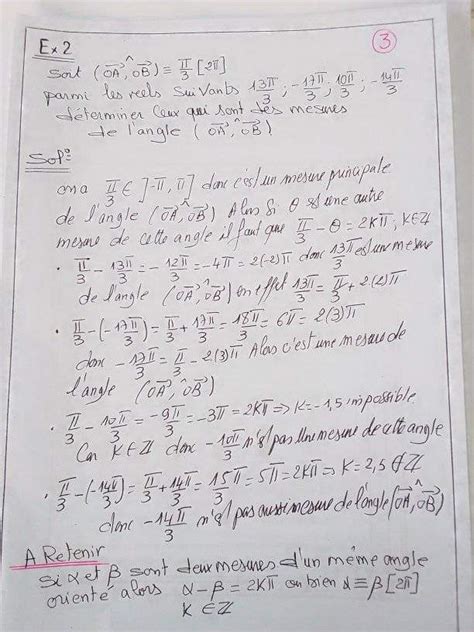 Ex 2
③
Soit (OA⃗ ,^ OB⃗) ≡ π/3 [2π]
parmi les reels suivants 13π/3 ; -17π/3 ; 10π/3 ; -14π/3
déterminer ceux qui sont des mesures
de l'angle (OA⃗ ,^ OB⃗)
Solº
on a π/3 ∈ ]-π, π] donc c'est un mesure principale
de l'angle (OA⃗ ,^ OB⃗) Alors Si θ est une autre
mesure de cette angle il faut que π/3 - θ = 2Kπ, K∈ℤ
• π/3 - 13π/3 = -12π/3 = -4π = 2(-2)π donc 13π/3 est une mesure
de l'angle (OA⃗ ,^ OB⃗) en effet 13π/3 = π/3 + 2(2)π
• π/3 - (-17π/3) = π/3 + 17π/3 = 18π/3 = 6π = 2(3)π
donc -17π/3 = π/3 - 2(3)π Alors c'est une mesure de
l'angle (OA⃗ ,^ OB⃗)
• π/3 - 10π/3 = -9π/3 = -3π = 2Kπ ⇒ K = -1,5 impossible
Car K∈ℤ donc -10π/3 n'est pas Une mesure de cette angle
• π/3 - (-14π/3) = π/3 + 14π/3 = 15π/3 = 5π = 2Kπ ⇒ K = 2,5 ∉ ℤ
donc -14π/3 n'est pas aussi mesure de l'angle (OA⃗ ,^ OB⃗)
A Retenir
Si α et β sont deux mesures d'un même angle
orienté alors α - β = 2Kπ ou bien α ≡ β [2π]
K ∈ ℤ